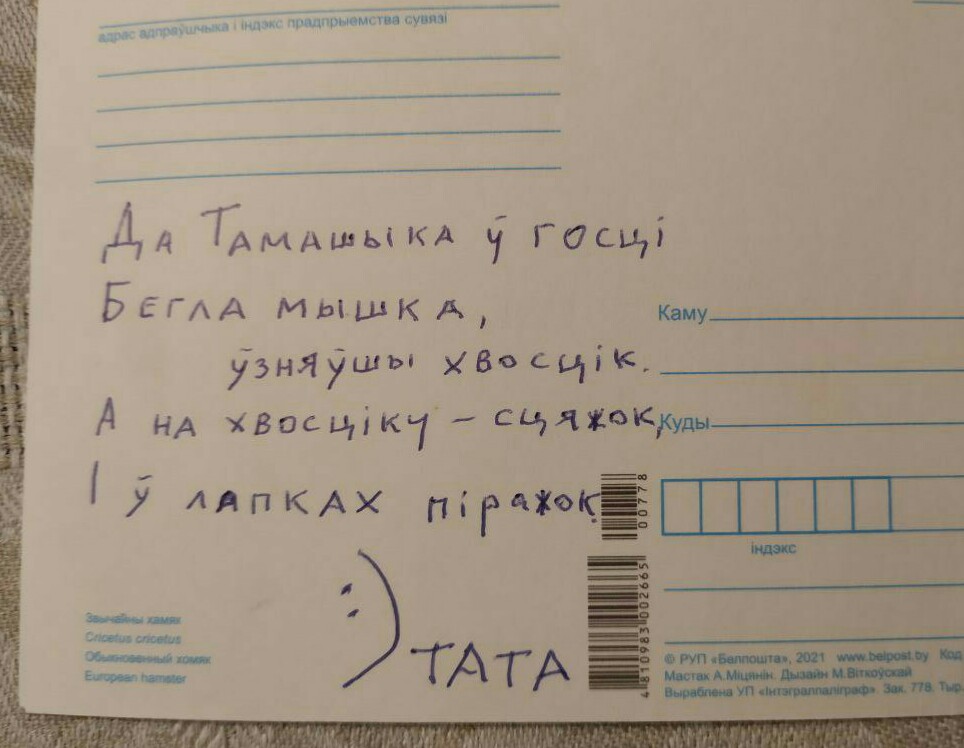 адрас адпраўшчыка і індэкс прадпрыемства сувязі
Да Тамашыка ў госці
Бегла мышка,
ўзняўшы хвосцік.
А на хвосціку – сцяжок,
І ў лапках піражок.
:)
ТАТА
Каму
Куды
00778
індэкс
4810983002665
Звычайны хамяк
Cricetus cricetus
Обыкновенный хомяк
European hamster
© РУП «Белпошта», 2021 www.belpost.by Код
Мастак А.Міцянін. Дызайн М.Віткоўскай
Выраблена УП «Інтэгралпаліграф». Зак. 778. Тыр.